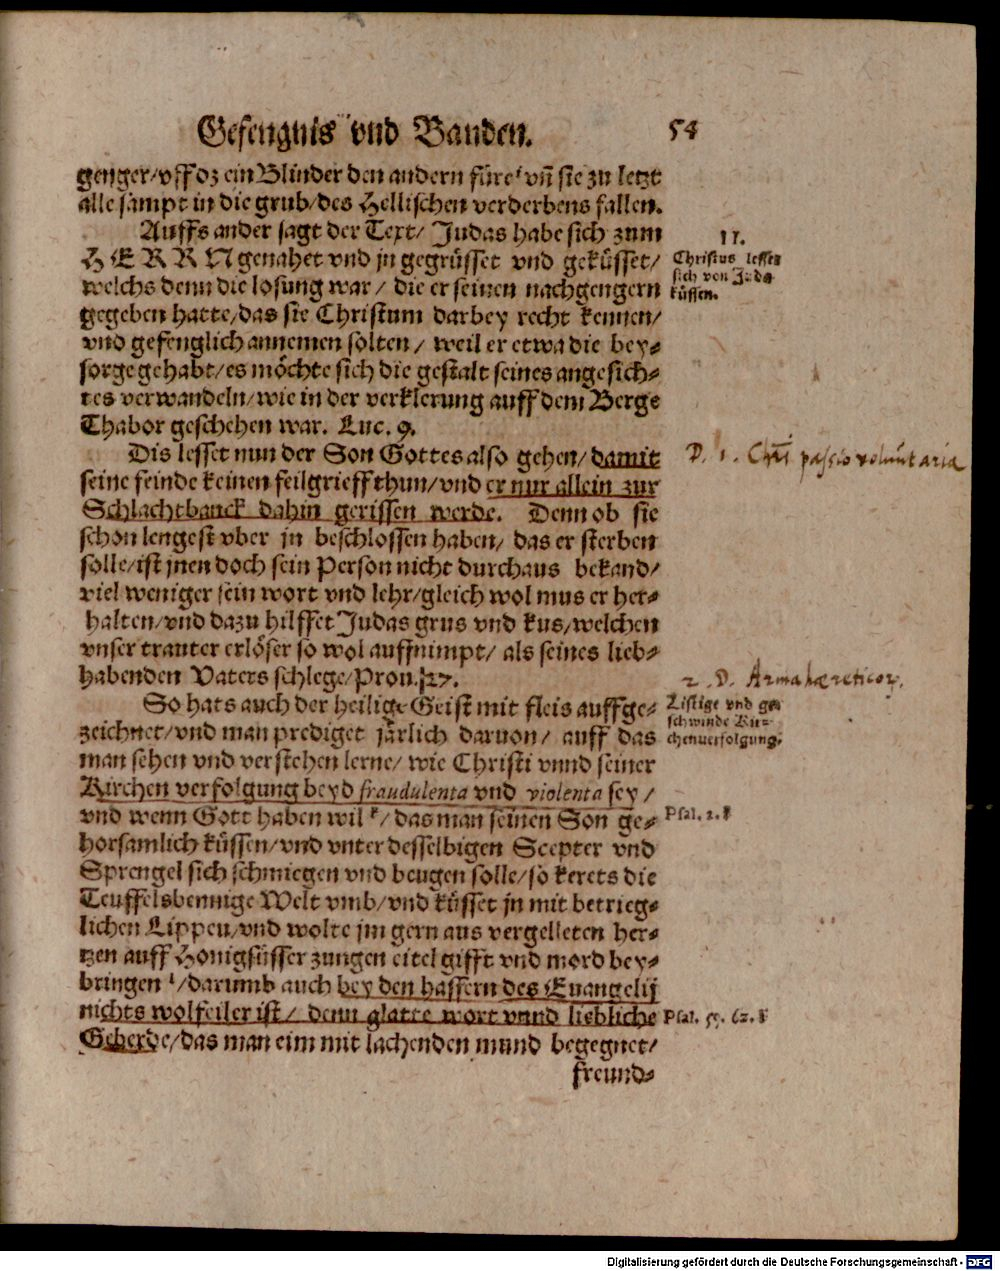 Gefengnis vnd Banden. 54
genger/vff dz ein Blinder den andern füre/vn̄ sie zu letzt
alle sampt in die grub/des Hellischen verderbens fallen.
Auffs ander sagt der Text/ Judas habe sich zum
HERRN genahet vnd jn gegrüsset vnd geküsset/
welchs denn die losung war/ die er seinen nachgengern
gegeben hatte/das sie Christum darbey recht kennen/
vnd gefenglich annemen solten/ weil er etwa die bey-
sorge gehabt/es möchte sich die gestalt seines angesich-
tes verwandeln/wie in der verklerung auff dem Berge
Thabor geschehen war. Luc. 9.
II.
Christus lesset
sich von Juda
küssen.
Dis lesset nun der Son Gottes also gehen/damit
seine feinde keinen feilgrieff thun/vnd er nur allein zur
Schlachtbanck dahin gerissen werde. Denn ob sie
schon lengest vber jn beschlossen haben/ das er sterben
solle/ist jnen doch sein Person nicht durchaus bekand/
viel weniger sein wort vnd lehr/gleich wol mus er her-
halten/vnd dazu hilffet Judas grus vnd kus/welchen
vnser trauter erlöser so wol auffnimpt/ als seines lieb-
habenden Vaters schlege/Prou. 27.
D. 1. Chr̄i passio voluntaria
So hats auch der heilige Geist mit fleis auffge-
zeichnet/vnd man prediget järlich daruon/ auff das
man sehen vnd verstehen lerne/ wie Christi vnnd seiner
Kirchen verfolgung beyd fraudulenta vnd violenta sey/
vnd wenn Gott haben wil k/das man seinen Son ge-
horsamlich küssen/vnd vnter desselbigen Scepter vnd
Sprengel sich schmiegen vnd beugen solle/so kerets die
Teuffelsbennige Welt vmb/vnd küsset jn mit betrieg-
lichen Lippen/vnd wolte jm gern aus vergelleten her-
tzen auff Honigsüsser zungen eitel gifft vnd mord bey-
bringen l/darumb auch bey den hassern des Euangelij
nichts wolfeiler ist/ denn glatte wort vnnd liebliche
Geberde/das man eim mit lachenden mund begegnet/
freund-
2. D. Arma haereticor.
Listige vnd ge-
schwinde Kir-
chenuerfolgung.
Psal. 2. k
Psal. 55. 62. l
Digitalisierung gefördert durch die Deutsche Forschungsgemeinschaft - DFG